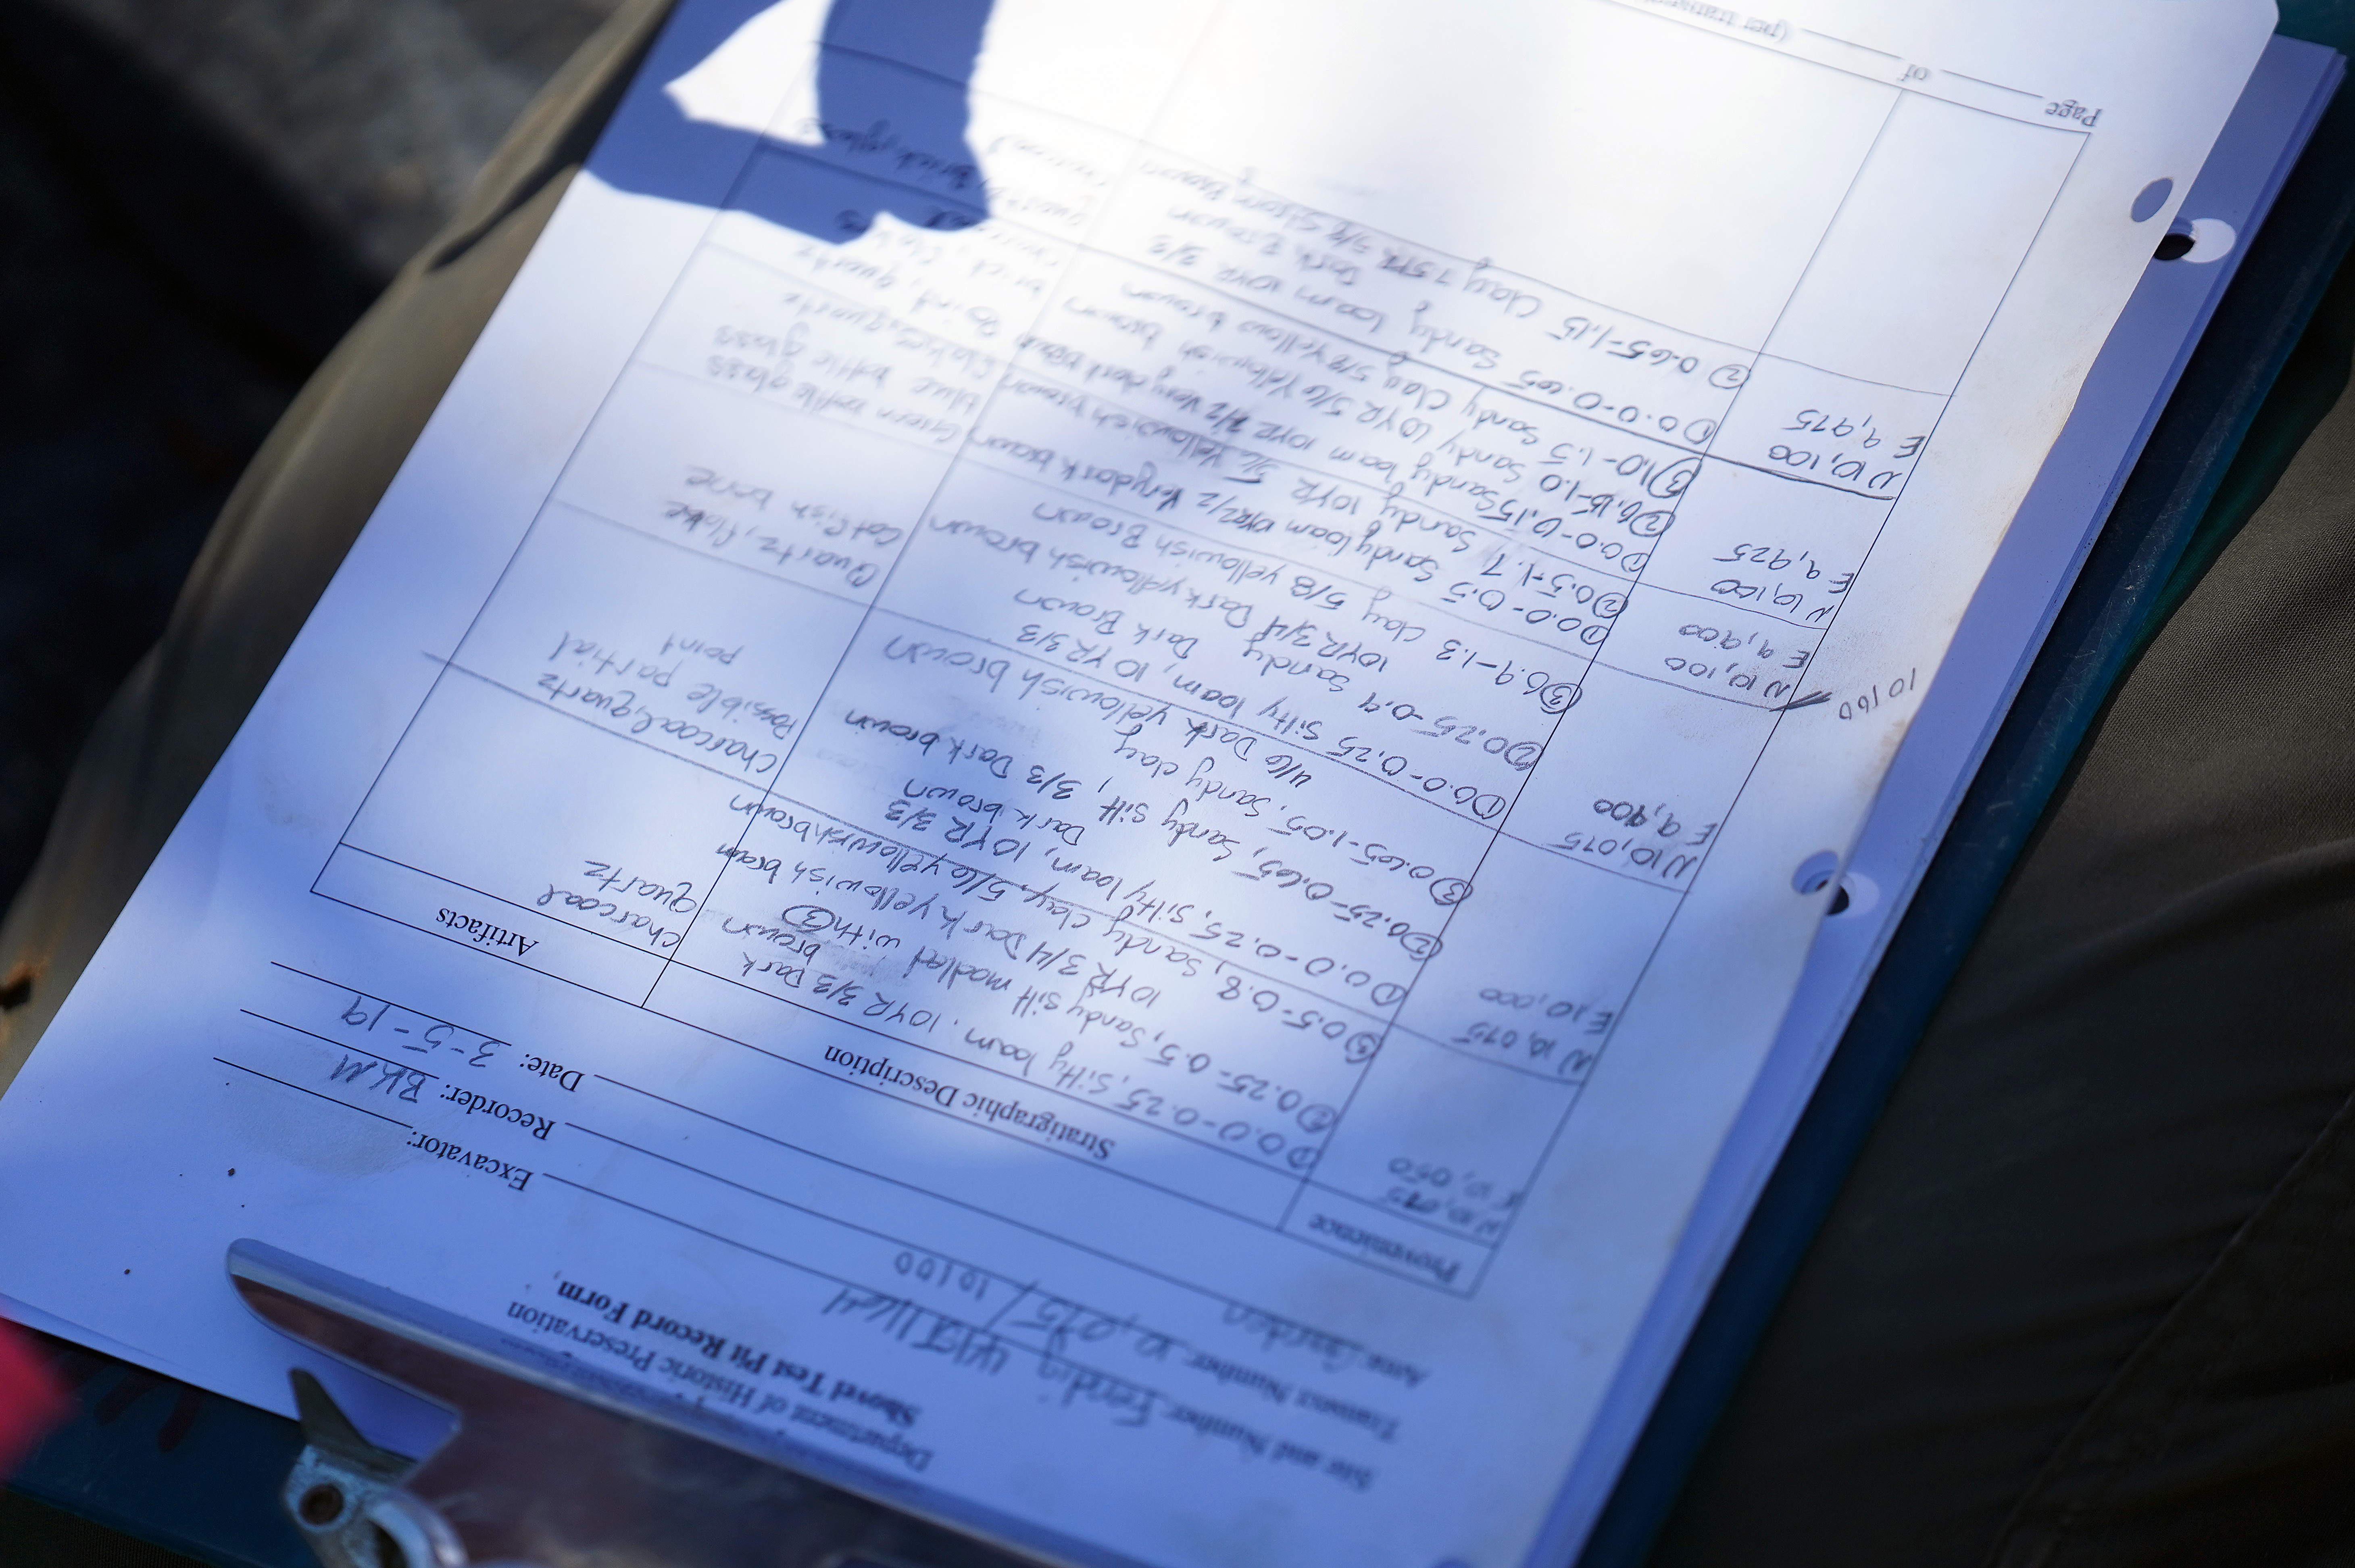 Department of Historic Preservation
Shovel Test Pit Record Form
Site and Number: 41ST1164
Transect Number: 10,075/10100
Area: Garden
Excavator:
Recorder: BKM
Date: 3-5-19
Provenience Stratigraphic Description Artifacts
N 10,075
E 10,050
① 0.0-0.25, silty loam, 10YR 3/3 Dark
brown
② 0.25-0.5, Sandy silt modled with ③
10YR 3/4 Dark yellowish brown
③ 0.5-0.8, Sandy clay, 5/6 yellowish brown
charcoal
quartz
N 10,075
E 10,000
① 0.0-0.25, silty loam, 10YR 3/3
Dark brown
② 0.25-0.65, Sandy silt, 3/3 Dark brown
③ 0.65-1.05, Sandy clay
4/6 Dark yellowish brown
charcoal, quartz
Possible partial
point
N 10,075
E 9,900
① 0.0-0.25 silty loam, 10YR 3/3
Dark Brown
② 0.25-0.9 Sandy
10YR 3/4 Dark yellowish brown
③ 0.9-1.3 clay 5/8 yellowish Brown
Quartz, flake
Catfish bone
10100
N 10,100
E 9,900
① 0.0-0.5 Sandy loam 10YR 2/2 Very dark brown
② 0.5-1.7 Sandy 10YR 5/6 Yellowish brown
Green bottle glass
blue bottle glass
N 10,100
E 9,925
① 0.0-0.15 Sandy loam 10YR 2/2 Very dark brown
② 0.15-1.0 Sandy 10YR 5/6 Yellowish brown
③ 1.0-1.5 Sandy Clay 5/8 Yellow brown
flakes, quartz
Point, quartz
brick
N 10,100
E 9,975
① 0.0-0.65 Sandy loam 10YR 3/3
Dark Brown
② 0.65-1.15 Clay 7.5YR 5/8 Strong Brown
Brick, glass
Page of (per transect)